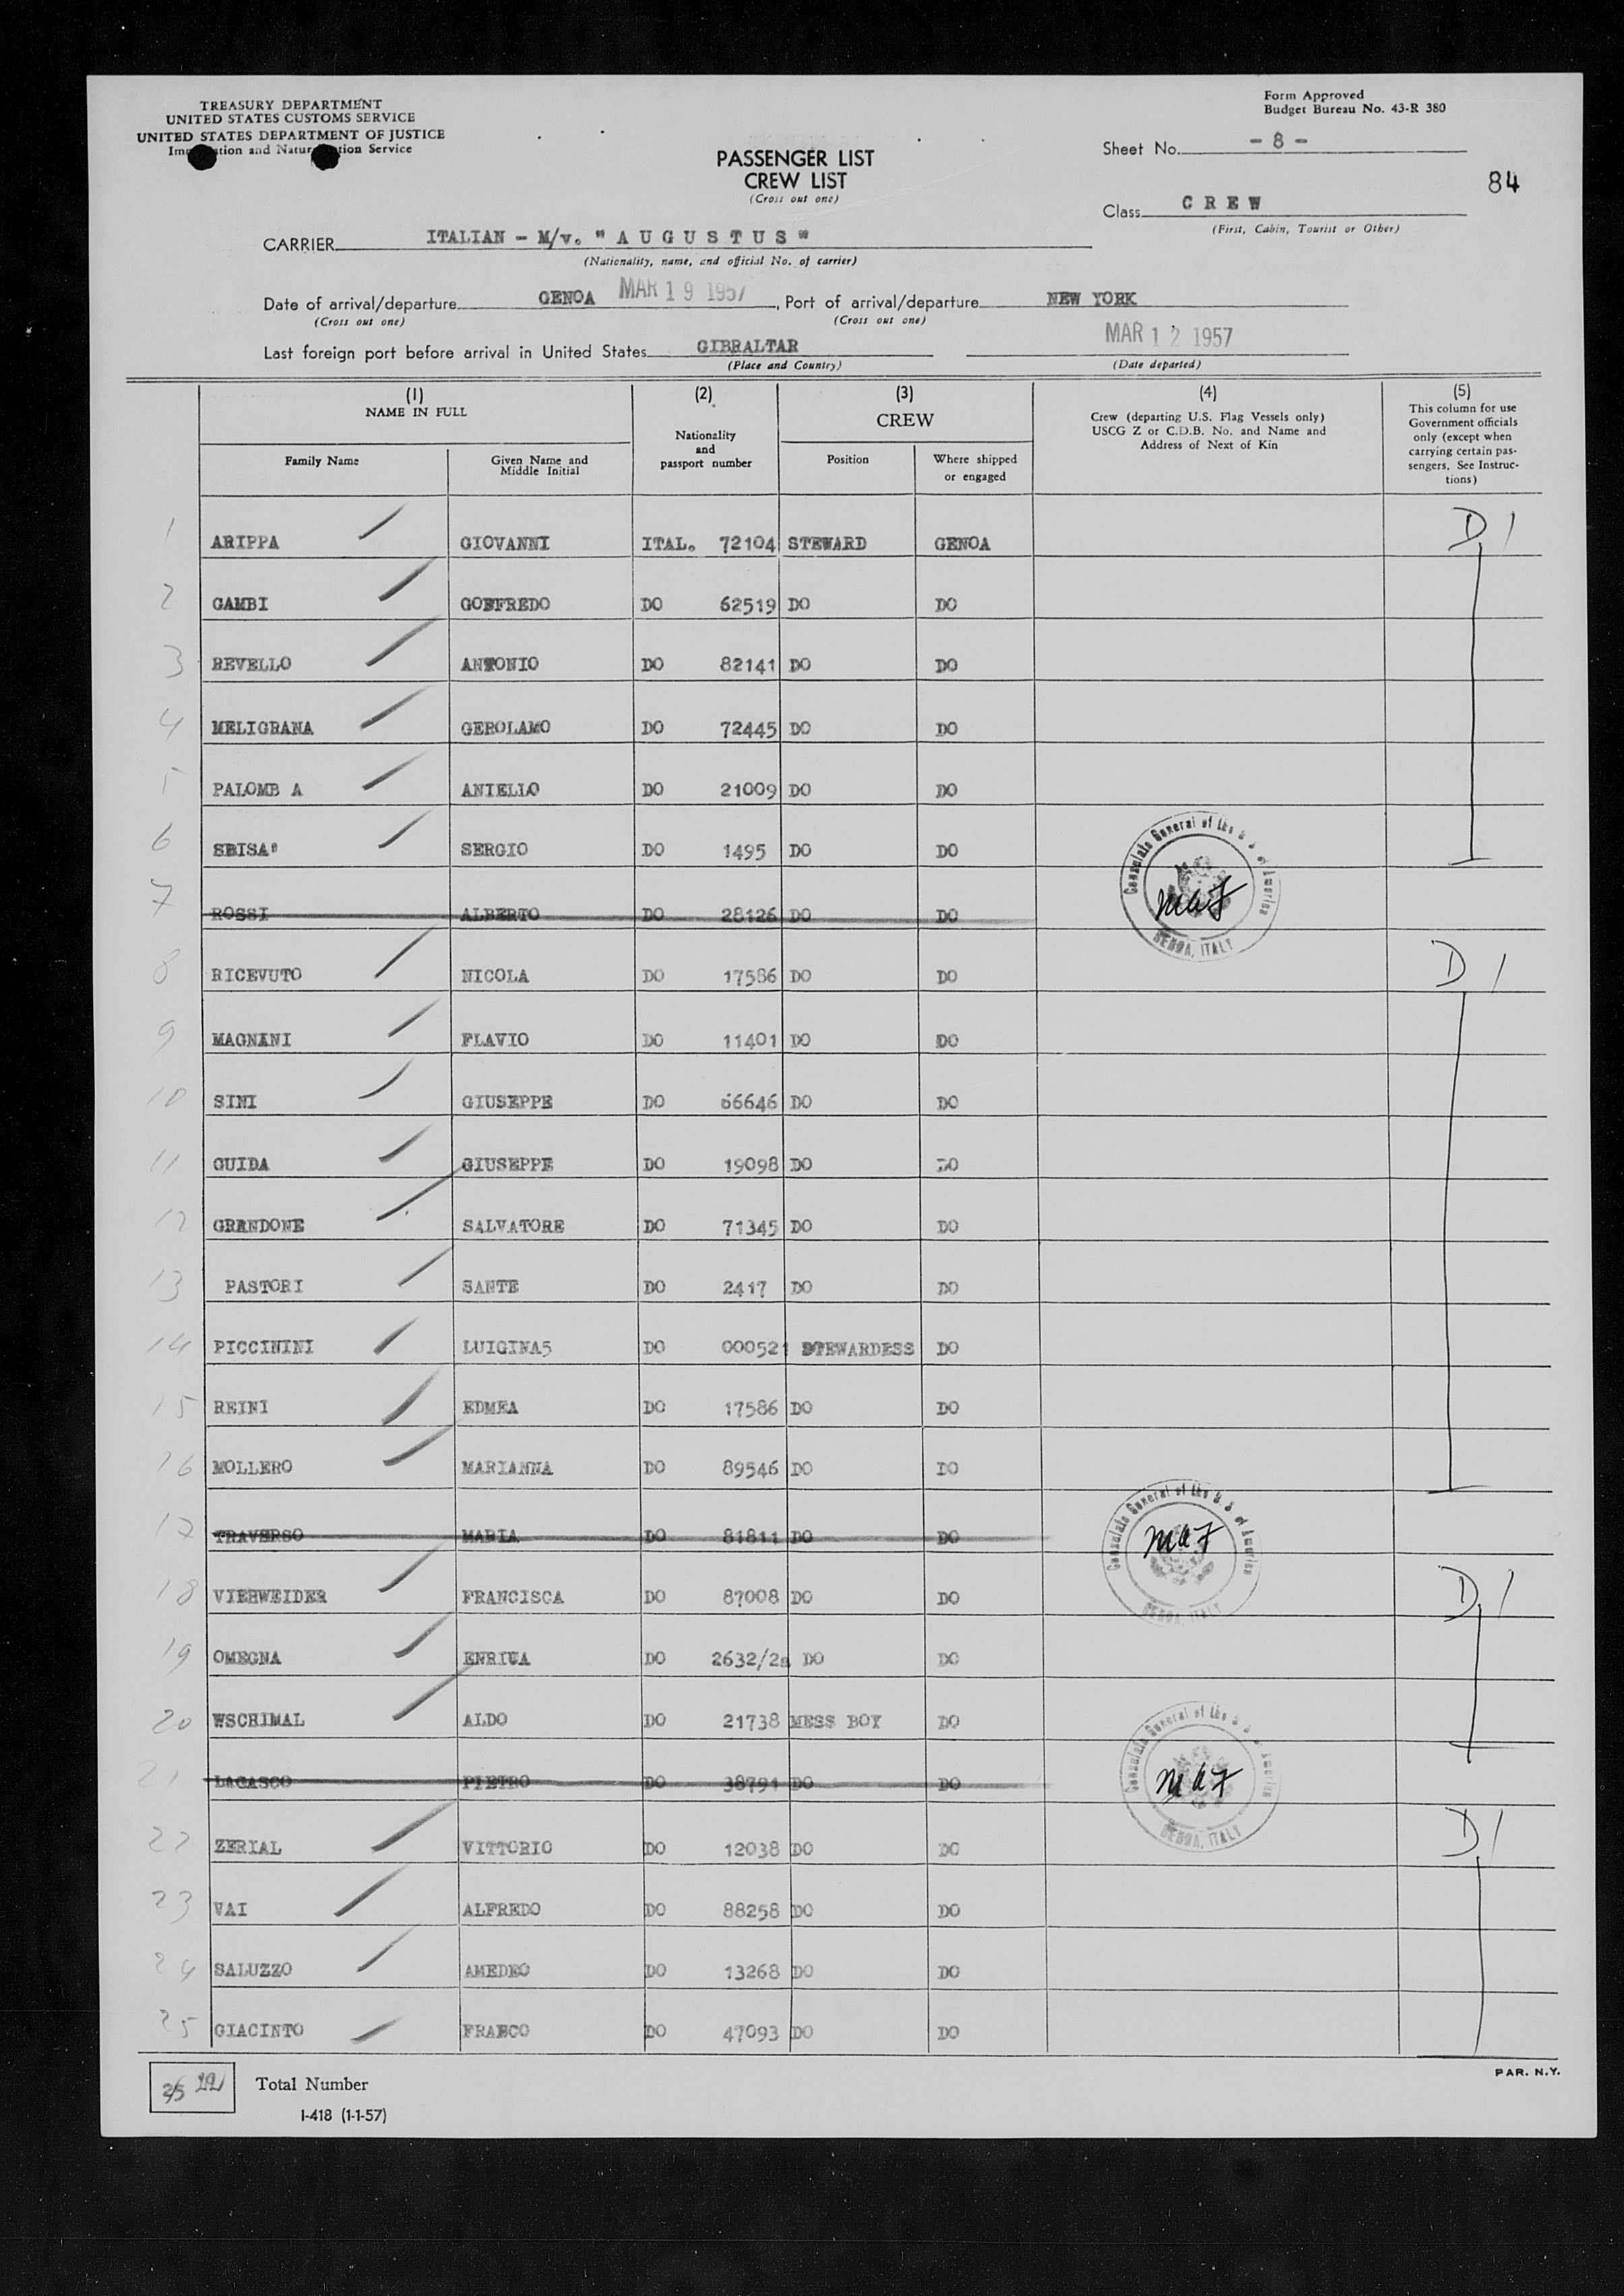 TREASURY DEPARTMENT
UNITED STATES CUSTOMS SERVICE
UNITED STATES DEPARTMENT OF JUSTICE
and Service
Form Approved
Budget Bureau No. 43-R 380
PASSENGER LIST
CREW LIST
(Cross out one)
Sheet No. - 8 -
84
Class C R E W
(First, Cabin, Tourist or Other)
CARRIER ITALIAN - M/v. " A U G U S T U S "
(Nationality, name, and official No. of carrier)
Date of arrival/departure GENOA MAR 19 1957, Port of arrival/departure NEW YORK
(Cross out one) (Cross out one)
MAR 12 1957
Last foreign port before arrival in United States GIBRALTAR
(Place and Country) (Date departed)
(1) NAME IN FULL
Family Name
Given Name and Middle Initial
(2) Nationality and passport number
(3) CREW
Position
Where shipped or engaged
(4) Crew (departing U.S. Flag Vessels only) USCG Z or C.D.B. No. and Name and Address of Next of Kin
(5) This column for use Government officials only (except when carrying certain passengers. See Instructions)
1 ARIPPA GIOVANNI ITAL. 72104 STEWARD GENOA D 1
2 GAMBI GOFFREDO DO 62519 DO DO
3 REVELLO ANTONIO DO 82141 DO DO
4 MELIGRANA GEROLAMO DO 72445 DO DO
5 PALOMB A ANIELLO DO 21009 DO DO
6 SBISA" SERGIO DO 1495 DO DO
7 ROSSI ALBERTO DO 28126 DO DO
Consulate General of the U S of America
MAF
GENOA, ITALY
8 RICEVUTO NICOLA DO 17586 DO DO D 1
9 MAGNANI FLAVIO DO 11401 DO DO
10 SINI GIUSEPPE DO 66646 DO DO
11 GUIDA GIUSEPPE DO 19098 DO DO
12 GRANDONE SALVATORE DO 71345 DO DO
13 PASTORI SANTE DO 2417 DO DO
14 PICCININI LUIGINA5 DO 000521 STEWARDESS DO
15 REINI EDMEA DO 17586 DO DO
16 MOLLERO MARIANNA DO 89546 DO DO
17 TRAVERSO MARIA DO 81811 DO DO
Consulate General of the U S of America
MAF
GENOA, ITALY
18 VIEHWEIDER FRANCISCA DO 87008 DO DO D 1
19 OMEGNA DO 2632/2a DO DO
20 WSCHIMAL ALDO DO 21738 MESS BOY DO
21 LAGASCO PIETRO DO 38791 DO DO
Consulate General of the U S of America
MAF
GENOA, ITALY
22 ZERIAL VITTORIO DO 12038 DO DO D 1
23 VAI ALFREDO DO 88258 DO DO
24 SALUZZO AMEDEO DO 13268 DO DO
25 GIACINTO FRANCO DO 47093 DO DO
25 22 Total Number
I-418 (1-1-57)
PAR. N.Y.